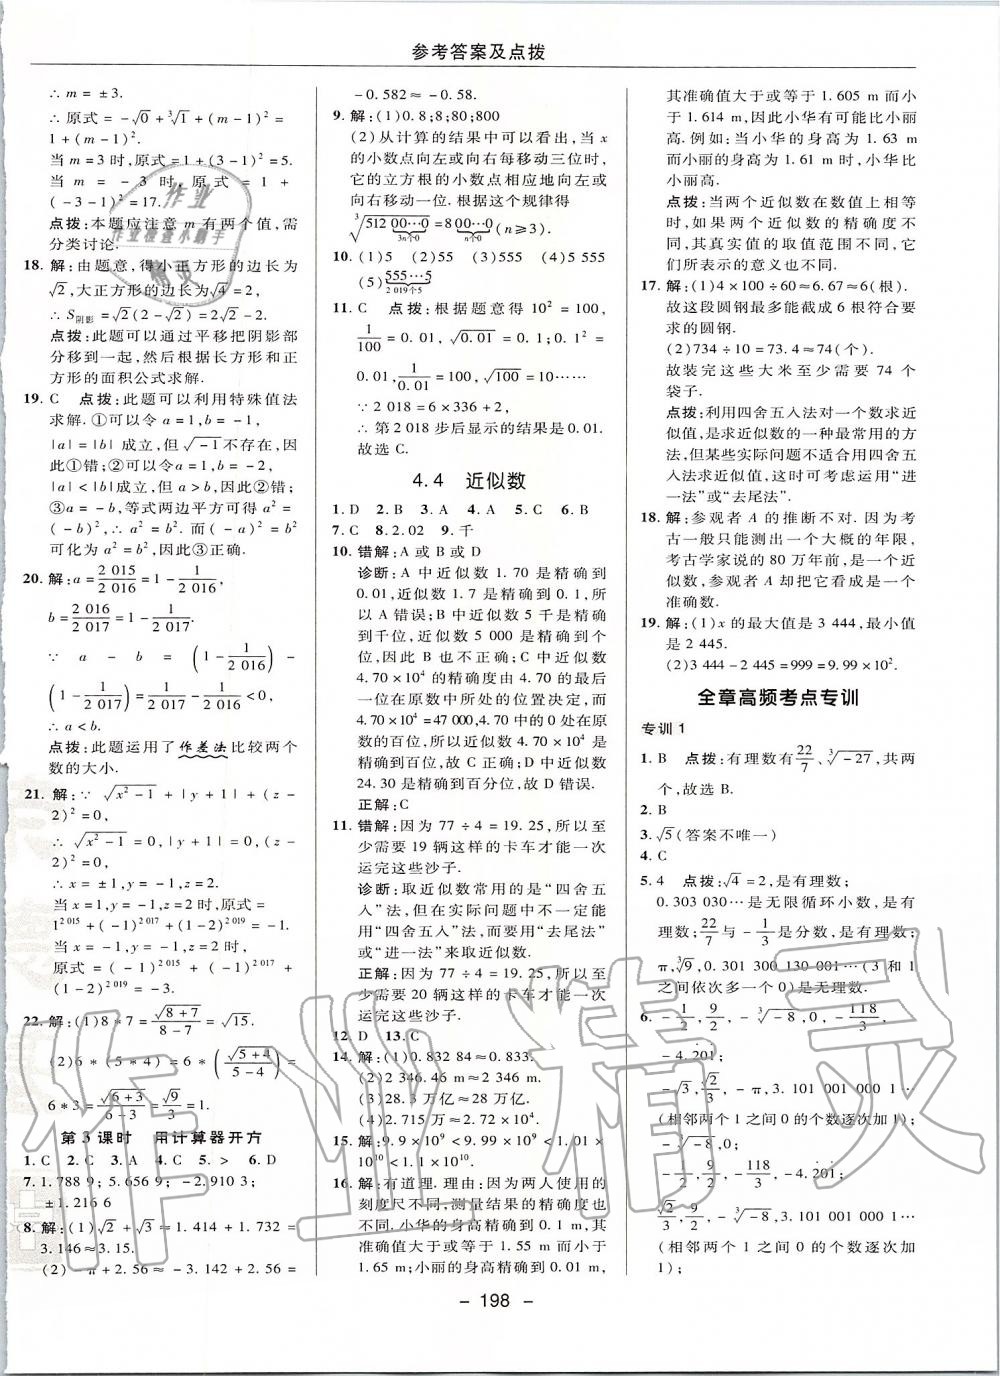 参考答案及点拨
∴ m = ±3.
∴ 原式 = −√0 + ∛1 + (m−1)² =
1+(m−1)².
当 m=3 时,原式=1+(3−1)²=5.
当 m = −3 时,原式 = 1 +
(−3−1)²=17.
点拨:本题应注意 m 有两个值,需
分类讨论.
18. 解:由题意,得小正方形的边长为
√2,大正方形的边长为√4=2,
∴ S阴影=√2(2−√2)=2√2−2.
点拨:此题可以通过平移把阴影部
分移到一起,然后根据长方形和正
方形的面积公式求解.
19. C 点拨:此题可以利用特殊值法
求解.①可以令 a=1,b=−1,
|a|=|b|成立,但√−1不存在,因
此①错;②可以令 a=1,b=−1,
|a|=|b|成立,但 a>b,因此②错;
③a=−b,等式两边平方可得 a²=
(−b)²,∴ a²=b². 而(−a)²=b²
可化为 a²=b²,因此③正确.
20. 解:a=2 015/2 016=1−1/2 016,
b=2 016/2 017=1−1/2 017.
∵ a − b = (1−1/2 016) −
(1−1/2 017)=1/2 017−1/2 016<0,
∴ a<b.
点拨:此题运用了作差法比较两个
数的大小.
21. 解:∵ √(x²−1) + |y+1| + (z−
2)²=0,
∴ √(x²−1)=0,|y+1|=0,(z−
2)²=0,
∴ x=±1,y=−1,z=2.
当 x=1,y=−1,z=2时,原式=
1^2 015+(−1)^2 017+(1−2)^2 019=−1.
当 x=−1,y=−1,z=2 时,
原式=(−1)^2 015+(−1)^2 017+
(1−2)^2 019=−3.
22. 解:(1)8*7=√(8+7)/(8−7)=√15.
(2)6*(5*4)=6*(√(5+4)/(5−4))=
6*3=√(6+3)/(6−3)=√9/3=1.
第3课时 用计算器开方
1. C 2. C 3. A 4. C 5. > 6. D
7. 1.788 9; 5.656 9; −2.910 3;
±1.216 6
8. 解:(1)√2+√3=1.414+1.732=
3.146≈3.15.
(2)−π+2.56≈−3.142+2.56=
−0.582≈−0.58.
9. 解:(1)0.8;8;80;800
(2)从计算的结果中可以看出,当 x
的小数点向左或向右每移动三位时,
它的立方根的小数点相应地向左或
向右移动一位.根据这个规律得
∛(512 00⋯0)=8 00⋯0(n≥3).
3n个0 n个0
10. (1)5 (2)55 (3)555 (4)5 555
(5)555⋯5
2 019个5
11. C 点拨:根据题意得 10²=100,
1/100=0.01,√0.01=0.1;0.1²=
0.01,1/0.01=100,√100=10⋯⋯
∵ 2 018=6×336+2,
∴ 第 2 018 步后显示的结果是 0.01.
故选 C.
4.4 近似数
1. D 2. B 3. A 4. A 5. C 6. B
7. C 8. 2.02 9. 千
10. 错解:A 或 B 或 D
诊断:A 中近似数 1.70 是精确到
0.01,近似数 1.7 是精确到 0.1,所
以 A 错误;B 中近似数 5 千是精确
到千位,近似数 5 000 是精确到个
位,因此 B 也不正确;C 中近似数
4.70×10⁴的精确度是由 4.70 的最
后一位在原数中所处的位置决定,而
4.70×10⁴=47 000,4.70中的0处在原
数的百位,所以 C 正确;D 中近似数
24.30 是精确到百分位,故 D 错误.
正解:C
11. 错解:因为 77÷4=19.25,所以至
少需要 19 辆这样的卡车才能一次
运完这些沙子.
诊断:取近似数常用的是“四舍五
入”法,但在实际问题中不一定能
用“四舍五入”法,而要用“去尾法”
或“进一法”来取近似数.
正解:因为 77÷4=19.25,所以至
少需要 20 辆这样的卡车才能一次
运完这些沙子.
12. D 13. C
14. 解:(1)0.832 84≈0.833.
(2)2 346.46 m≈2 346.5 m.
(3)28.3 万≈28 万.
(4)2.715万≈2.7×10⁴.
15. 解:9.9×10⁹+9.9×10⁸+1=1.089×
10¹⁰+1≈1.1×10¹⁰.
16. 解:有道理.理由:因为两人使用的
刻度尺不同,测量结果的精确度也
可能不同.小华的身高精确到 0.1 m,
其准确值大于或等于 1.55 m而小于
1.65 m;小丽的身高精确到 0.01 m,
其准确值大于或等于 1.605 m 而小
于 1.614 m,因此小华有可能比小丽
高.例如:当小华的身高为 1.63 m
而小丽的身高为 1.61 m时,小华比
小丽高.
点拨:当两个近似数在数值上相等
时,如果两个近似数的精确度不
同,其真实值的取值范围不同,它
们所表示的意义也不同.
17. 解:(1)4×100÷60≈6.67≈6(根).
故这段圆钢最多能截成 6 根符合要
求的圆钢.
(2)734÷10=73.4≈74(个).
故装完这些大米至少需要 74 个
袋子.
点拨:利用四舍五入法对一个数求近
似值,是求近似数的一种最常用的方
法,但某些实际问题不适合用四舍五
入法求近似值,这时可考虑运用“进
一法”或“去尾法”.
18. 解:参观者 A 的推断不对.因为考
古一般只能测出一个大概的年限,
考古学家说的 80 万年前,是一个近
似数,参观者 A 却把它看成是一个
准确数.
19. 解:(1)x 的最大值是 3 444,最小值
是 2 445.
(2)3 444−2 445=999=9.99×10².
全章高频考点专训
专训 1
1. B 点拨:有理数有22/7、∛−27,共两
个,故选 B.
2. B
3. √5(答案不唯一)
4. C
5. 4 点拨:√4=2,是有理数;
0.303 030⋯是无限循环小数,是有
理数;22/7与−1/3是分数,是有理数;
π,∛9,0.301 300 13⋯(3和1
之间依次多一个0)是无理数.
6. −1/2,9/2,−∛−8,0,−118/3,
−4.2̇01̇;
−√3,√2/3,−π,3.101 001 000 1⋯
(相邻两个 1 之间 0 的个数逐次加1);
−∛−8,0;
−1/2,9/2,−118/3,−4.2̇01̇;
√2/3,9/2,−∛−8,3.101 001 000 1⋯
(相邻两个 1 之间 0 的个数逐次
加 1);
– 198 –
作业
作业检查小助手
精灵
作业精灵